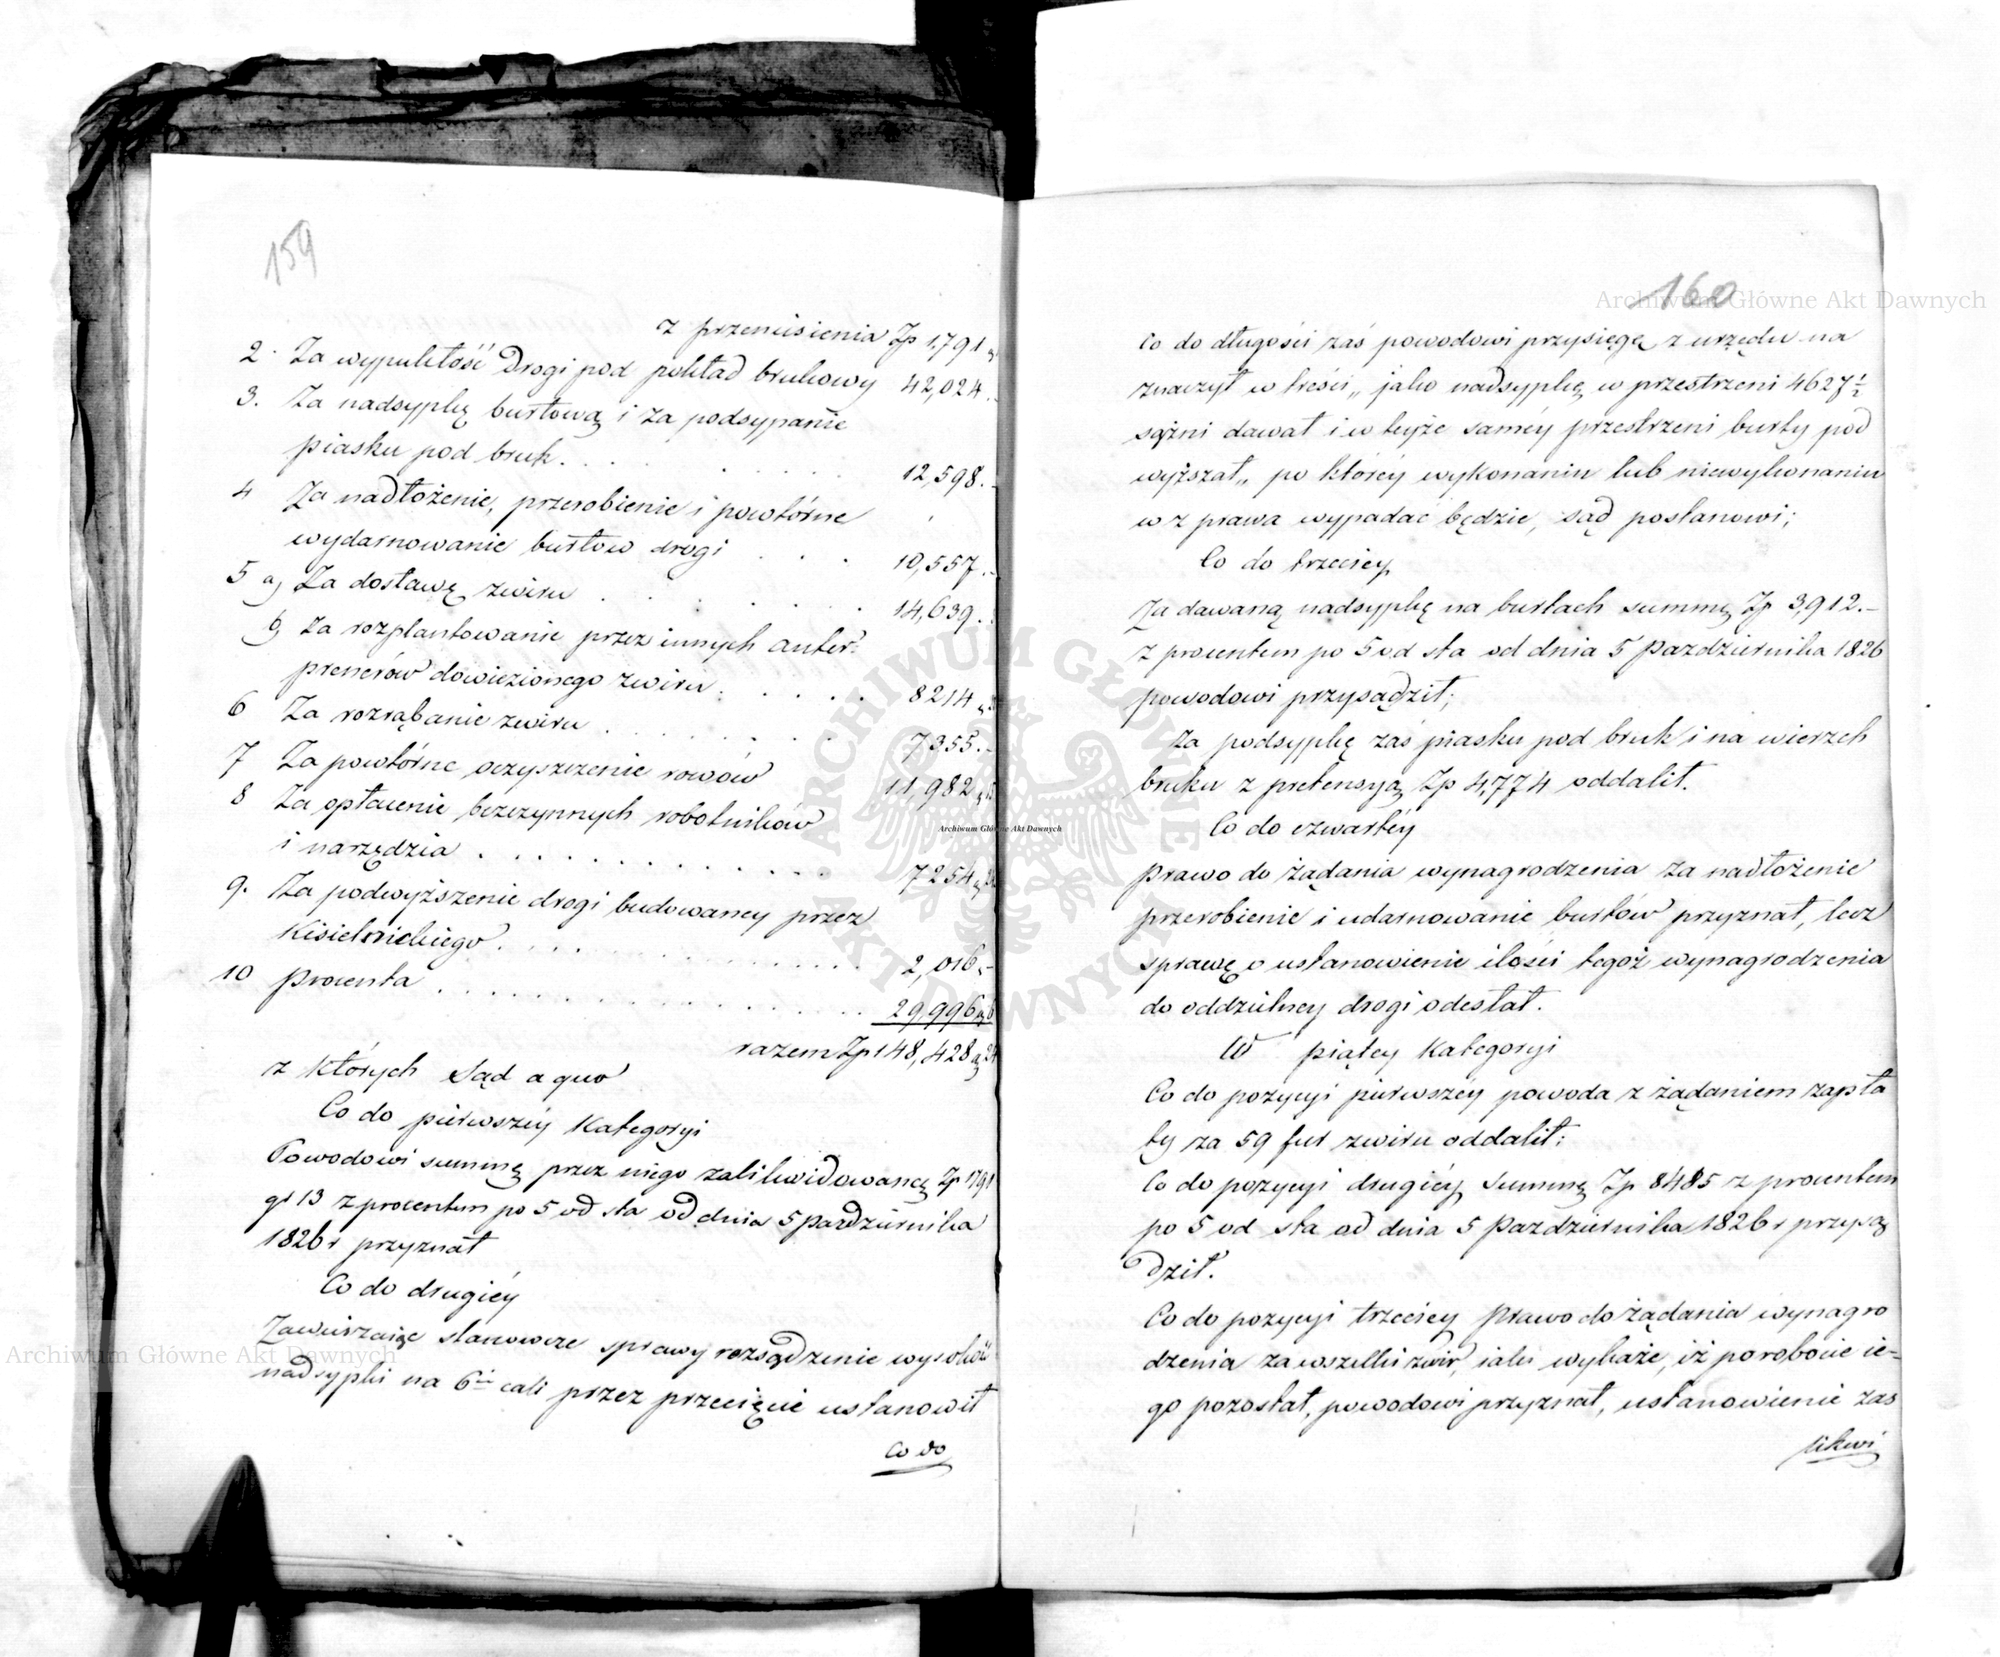 159
z przeniesienia Zp 1,791
2. Za wypukłość Drogi pod pokład brukowy 42,024.
3. Za nadsypkę burtową i za podsypanie
piasku pod bruk. . . . . . 12,598.
4 Za nadłożenie, przerobienie i powtórne
wydarnowanie burtow drogi . . . 10,557.
5 a) Za dostawę zwiru . . . . . . 14,639.
b) Za rozplantowanie przez innych anter=
prenerów dowiezionego zwiru . . . . 8214
6 Za rozrąbanie zwiru . . . . . . 7355.
7 Za powtórne oczyszczenie rowów 11,982
8 Za opłacenie bezczynnych robotników
i narzędzia . . . . . . . . . . 7254
9. Za podwyższenie drogi budowaney przez
Kisielnickiego . . . . . . . . . 2,016.
10 Procenta . . . . . . . . . . . 29,996
razem Zp 148,428
z których Sąd a quo
Co do pierwszéy Kategoryi
Powodowi summę przez niego zalikwidowaną Zp 1791
gr 13 z procentem po 5 od sta od dnia 5 Pazdziernika
1826 r przyznał
Co do drugiéy
Zawierzaiąc stanowcze sprawy rozsądzenie wysokość
nadsypki na 6ść cali przez przecięcie ustanowił
Co do
160
Co do długości zaś powodowi przysięgę z urzędu na
znaczył w treści „jako nadsypkę w przestrzeni 4627½
sążni dawał i w teyże saméy przestrzeni burty pod
wyższał„ po któréy wykonaniu lub niewykonaniu
co z prawa wypadać będzie, sąd postanowi;
Co do trzeciey
Za dawaną nadsypkę na burtach summę Zp 3,912.—
z procentem po 5 od sta od dnia 5 Pazdziernika 1826
powodowi przysądził;
Za podsypkę zaś piasku pod bruk i na wierzch
bruku z pretensyą Zp 4,774 oddalił.
Co do czwartéy
Prawo do żądania wynagrodzenia za nadłożenie
przerobienie i udarnowanie burtów przyznał, lecz
sprawę o ustanowienie ilości tegoż wynagrodzenia
do oddzielney drogi odesłał.
W piątey Kategoryi
Co do pozycyi pierwszéy powoda z żądaniem zapła
ty za 59 fur zwiru oddalił:
Co do pozycyi drugiéy summę Zp 8485 z procentem
po 5 od sta od dnia 5 Pazdziernika 1826 r przysą
dził.
Co do pozycyi trzeciey Prawo do żądania wynagro
dzenia za wszelki zwir, iaki wykaże, iż po robocie ie=
go pozostał, powodowi przyznał, ustanowienie zas
likwi
Archiwum Główne Akt Dawnych
Archiwum Główne Akt Dawnych
Archiwum Główne Akt Dawnych
ARCHIWUM GŁÓWNE AKT DAWNYCH